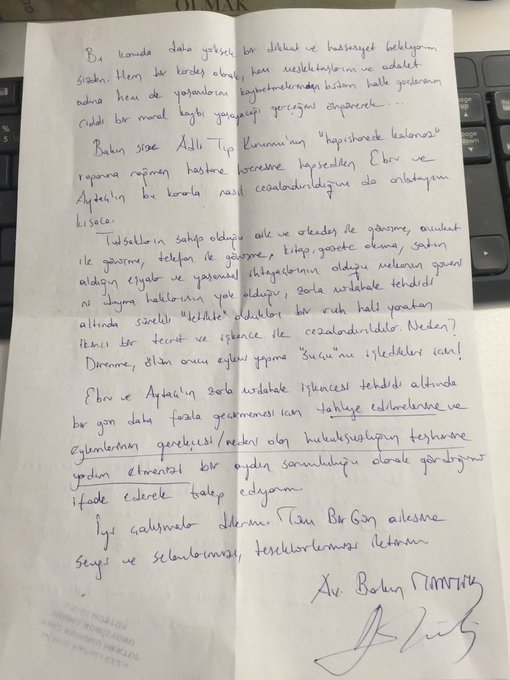 OLMAK
Bu konuda daha yüksek bir dikkat ve hassasiyet bekliyorum
sizden. Hem bir kardeş olarak, hem meslektaşlarım ve adalet
adına hem de yaşamlarını kaybetmelerinden bütün halk güçlerinin
ciddi bir moral kaybı yaşayacağı gerçeğini önünerek...
Bakın size Adli Tıp Kurumu'nun "hapishanede kalamaz"
raporuna rağmen hastane hücresine hapsedilen Ebru ve
Aytaç'ın bu kararla nasıl cezalandırıldığını da anlatayım
kısaca.
Tutsakların sahip olduğu aile ve arkadaş ile görüşme, avukat
ile görüşme, telefon ile görüşme, kitap, gazete okuma, satın
aldığın eşyalar ve yaşamsal ihtiyaçlarının olduğu mekanın güveni
ni duyma haklarının yok olduğu, zorla müdahale tehdidi
altında sürekli "tetikte" oldukları bir ruh hali yaratan
ikinci bir tecrit ve işkence ile cezalandırıldılar. Neden?
Direnme, ölüm orucu eylemi yapma "suçu"nu işledikleri için!
Ebru ve Aytaç'ın zorla müdahale işkencesi tehdidi altında
bir gün daha fazla geçirmemesi için tahliye edilmelerine ve
eylemlerinin gerekçesi/nedeni olan hukuksuzluğun teşhirine
yardım etmenizi bir aydın sorumluluğu olarak gördüğümü
ifade ederek talep ediyorum
İyi çalışmalar dilerim. Tüm Bir Gün ailesine
sevgi ve selamlarımızı, teşekkürlerimizi iletirim
Av. Barkın